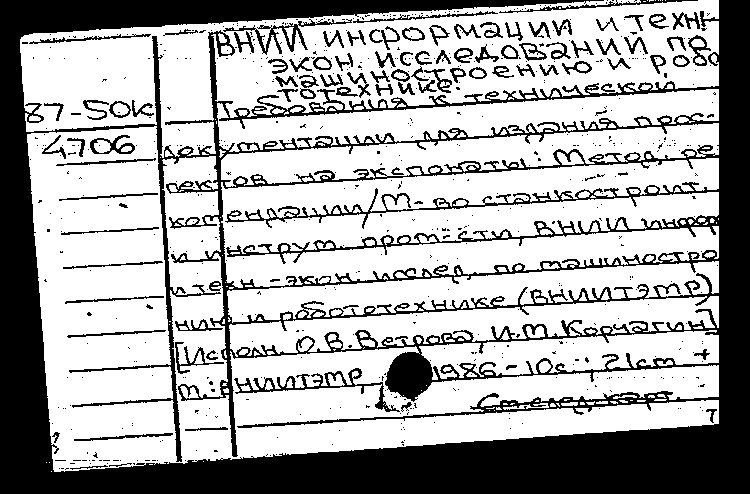 ВНИИ информации и техн-
экон. исследований по
машиностроению и робо
тотехнике.
87-50к Требования к технической
4706 документации для издания прос-
пектов на экспонаты: Метод. ре
комендации/М-во станкостроит.
и инструм. пром-сти, ВНИИ информ
и техн.-экон. исслед. по машиностро
нию и робототехнике (ВНИИТЭМР)
[Исполн. О.В.Ветрова, И.М.Корчагин]
М.: ВНИИТЭМР, 1986.- 10с.; 21см +
См.след.карт.